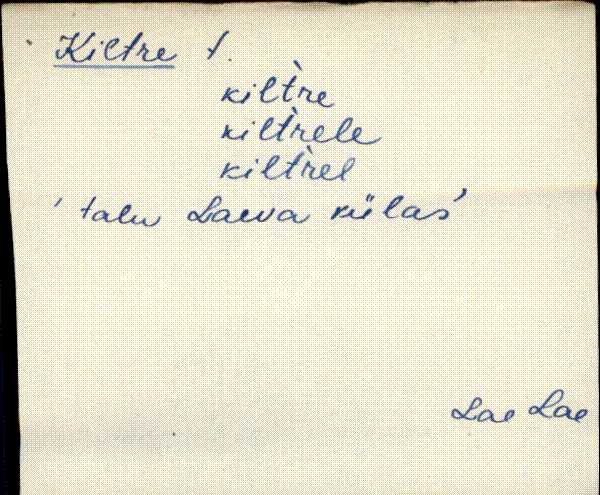 Kiltre t.
kilt̀re
kilt̀rele
kilt̀rel
' talu Laeva külas'
Lae Lae